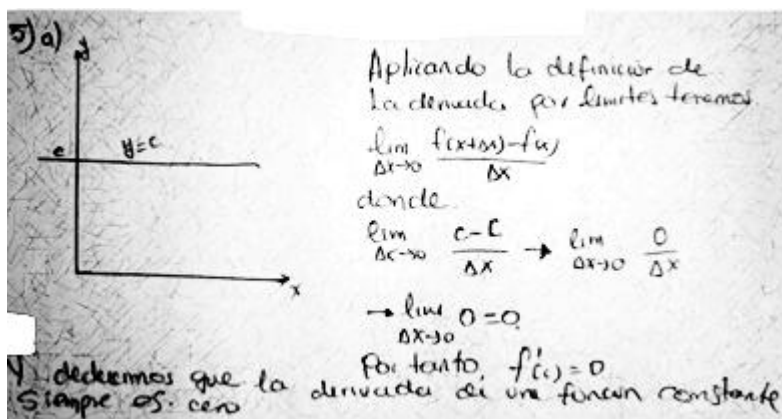 5) a)
y
Aplicando la definicion de
la derivada por limites tenemos
lim Δx→0 f(x+Δx)-f(x) / Δx
c
y=c
donde
lim Δx→0 c-c / Δx → lim Δx→0 0 / Δx
x
→ lim Δx→0 0 = 0
Por tanto, f'(c) = 0
Y deducimos que la derivada de una funcion constante
siempre es cero